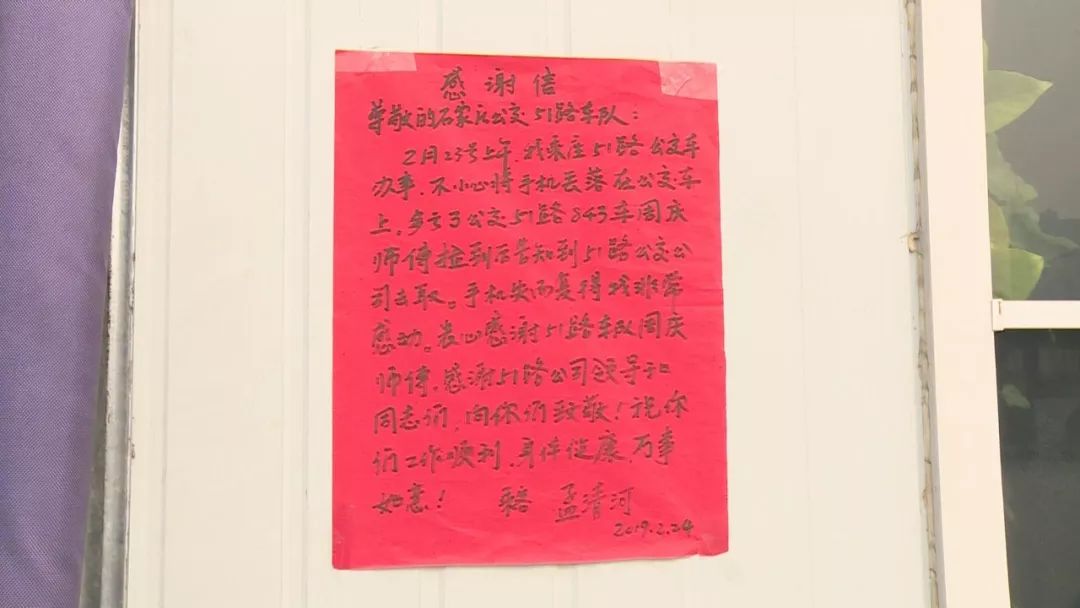 感谢信
尊敬的石家庄公交51路车队:
2月23号上午,我乘座51路公交车
办事,不小心将手机丢落在公交车
上,多亏了公交51路843车周庆
师傅捡到后告知到51路公交公
司去取。手机失而复得我非常
感动。衷心感谢51路车队周庆
师傅,感谢51路公司领导和
同志们,向你们致敬!祝你
们工作顺利,身体健康,万事
如意! 乘客 孟清河
2019.2.24